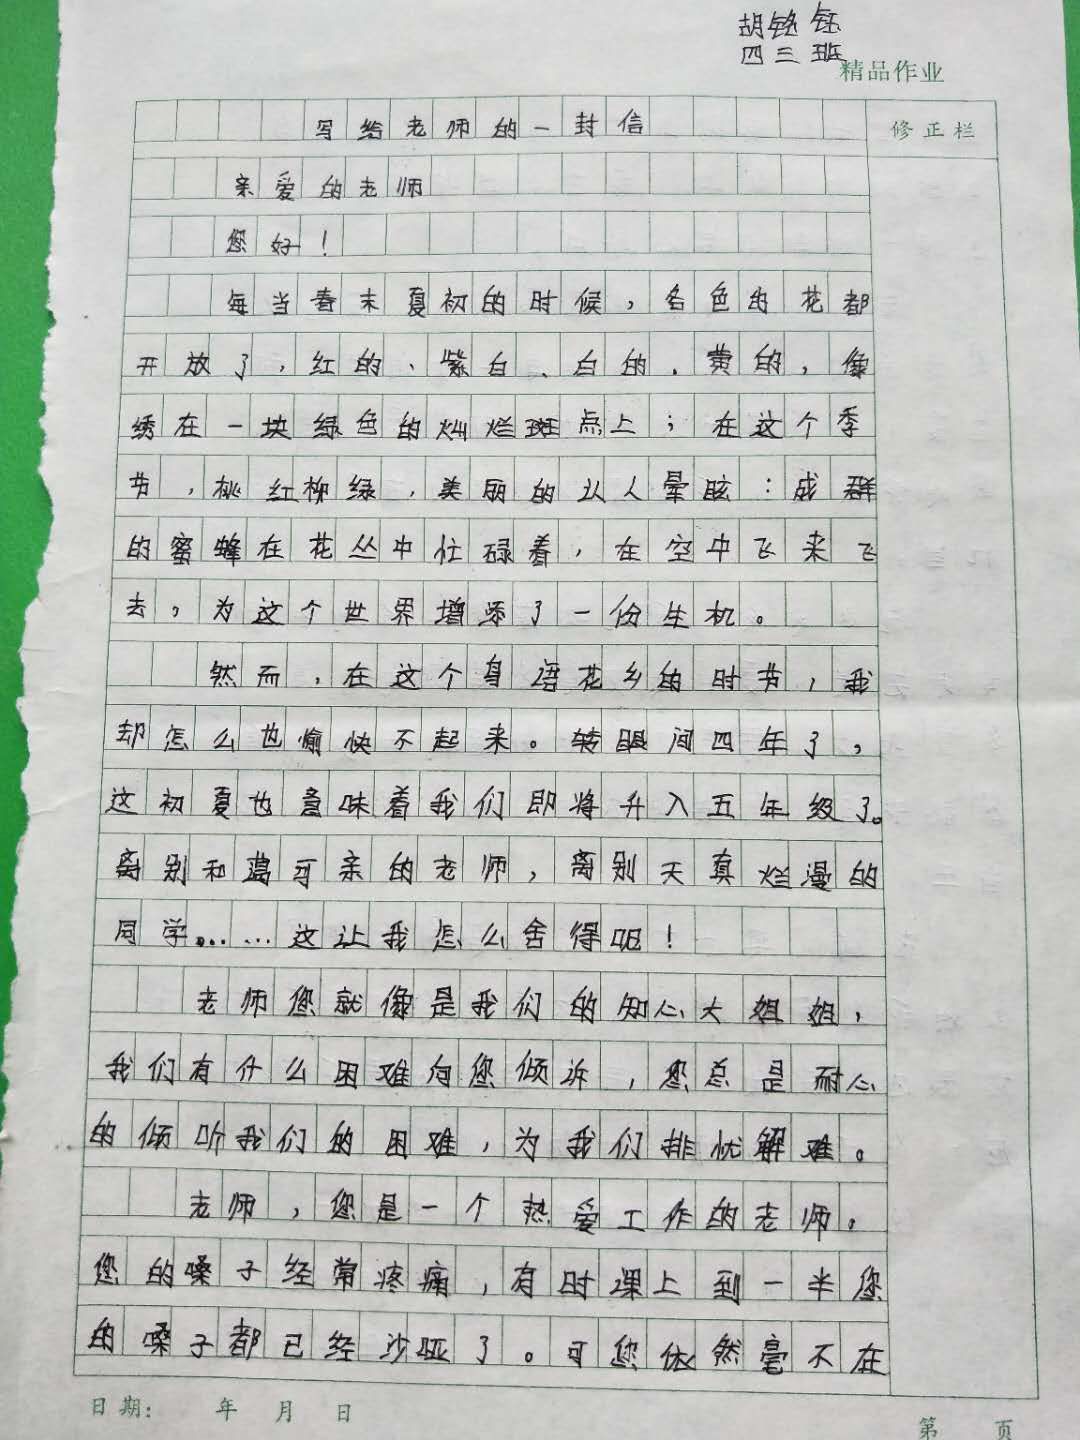 胡铭钰
四三班
精品作业
写给老师的一封信
修正栏
亲爱的老师
您好！
每当春末夏初的时候，各色的花都
开放了，红的、紫白、白的、黄的，像
绣在一块绿色的灿烂斑点上；在这个季
节，桃红柳绿，美丽的认人晕眩：成群
的蜜蜂在花丛中忙碌着，在空中飞来飞
去，为这个世界增添了一份生机。
然而，在这个鸟语花乡的时节，我
却怎么也愉快不起来。转眼间四年了，
这初夏也意味着我们即将升入五年级了。
离别和蔼可亲的老师，离别天真烂漫的
同学……这让我怎么舍得呢！
老师您就像是我们的知心大姐姐，
我们有什么困难向您倾诉，您总是耐心
的倾听我们的困难，为我们排忧解难。
老师，您是一个热爱工作的老师。
您的嗓子经常疼痛，有时课上到一半您
的嗓子都已经沙哑了。可您依然毫不在
日期： 年 月 日
第 页